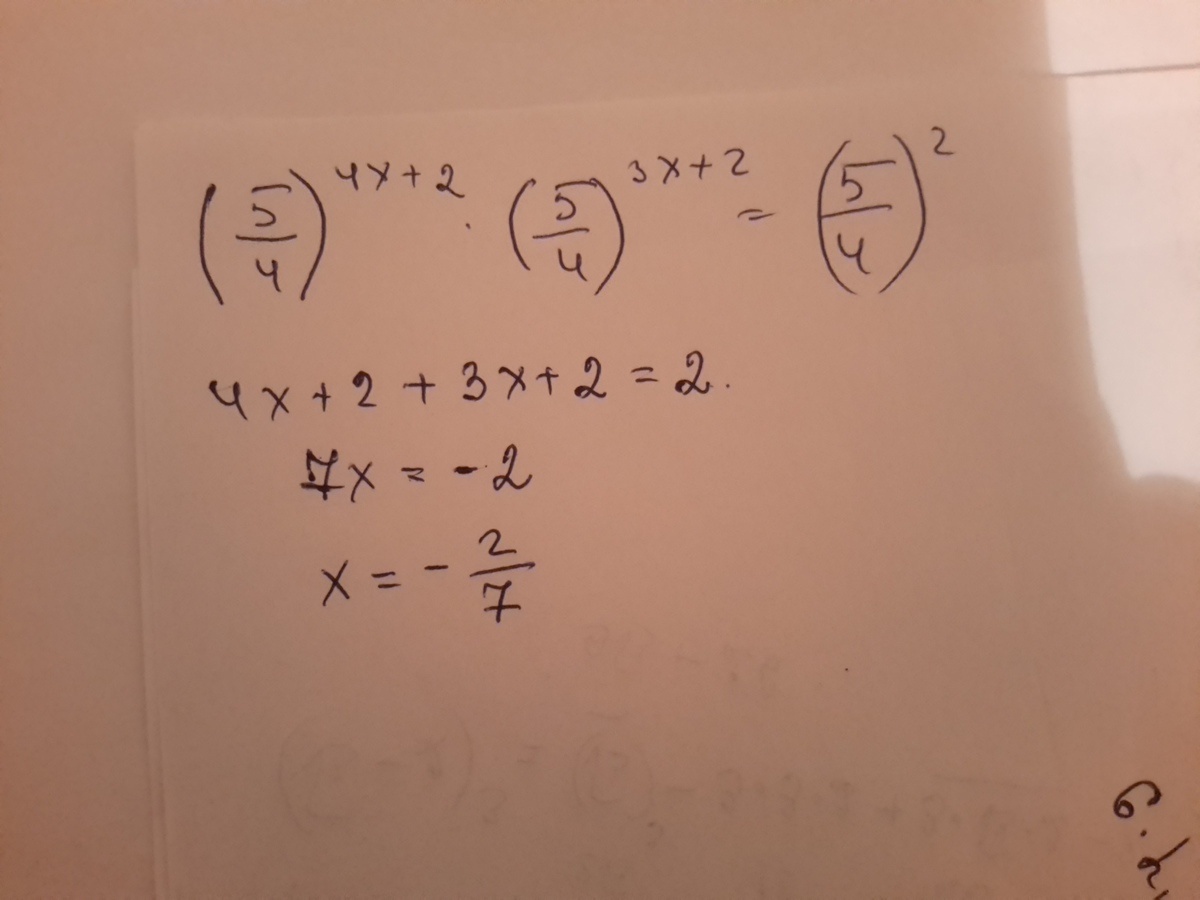 (5/4)^(4x+2) · (5/4)^(3x+2) = (5/4)^2
4x+2+3x+2=2.
7x = -2
x = - 2/7